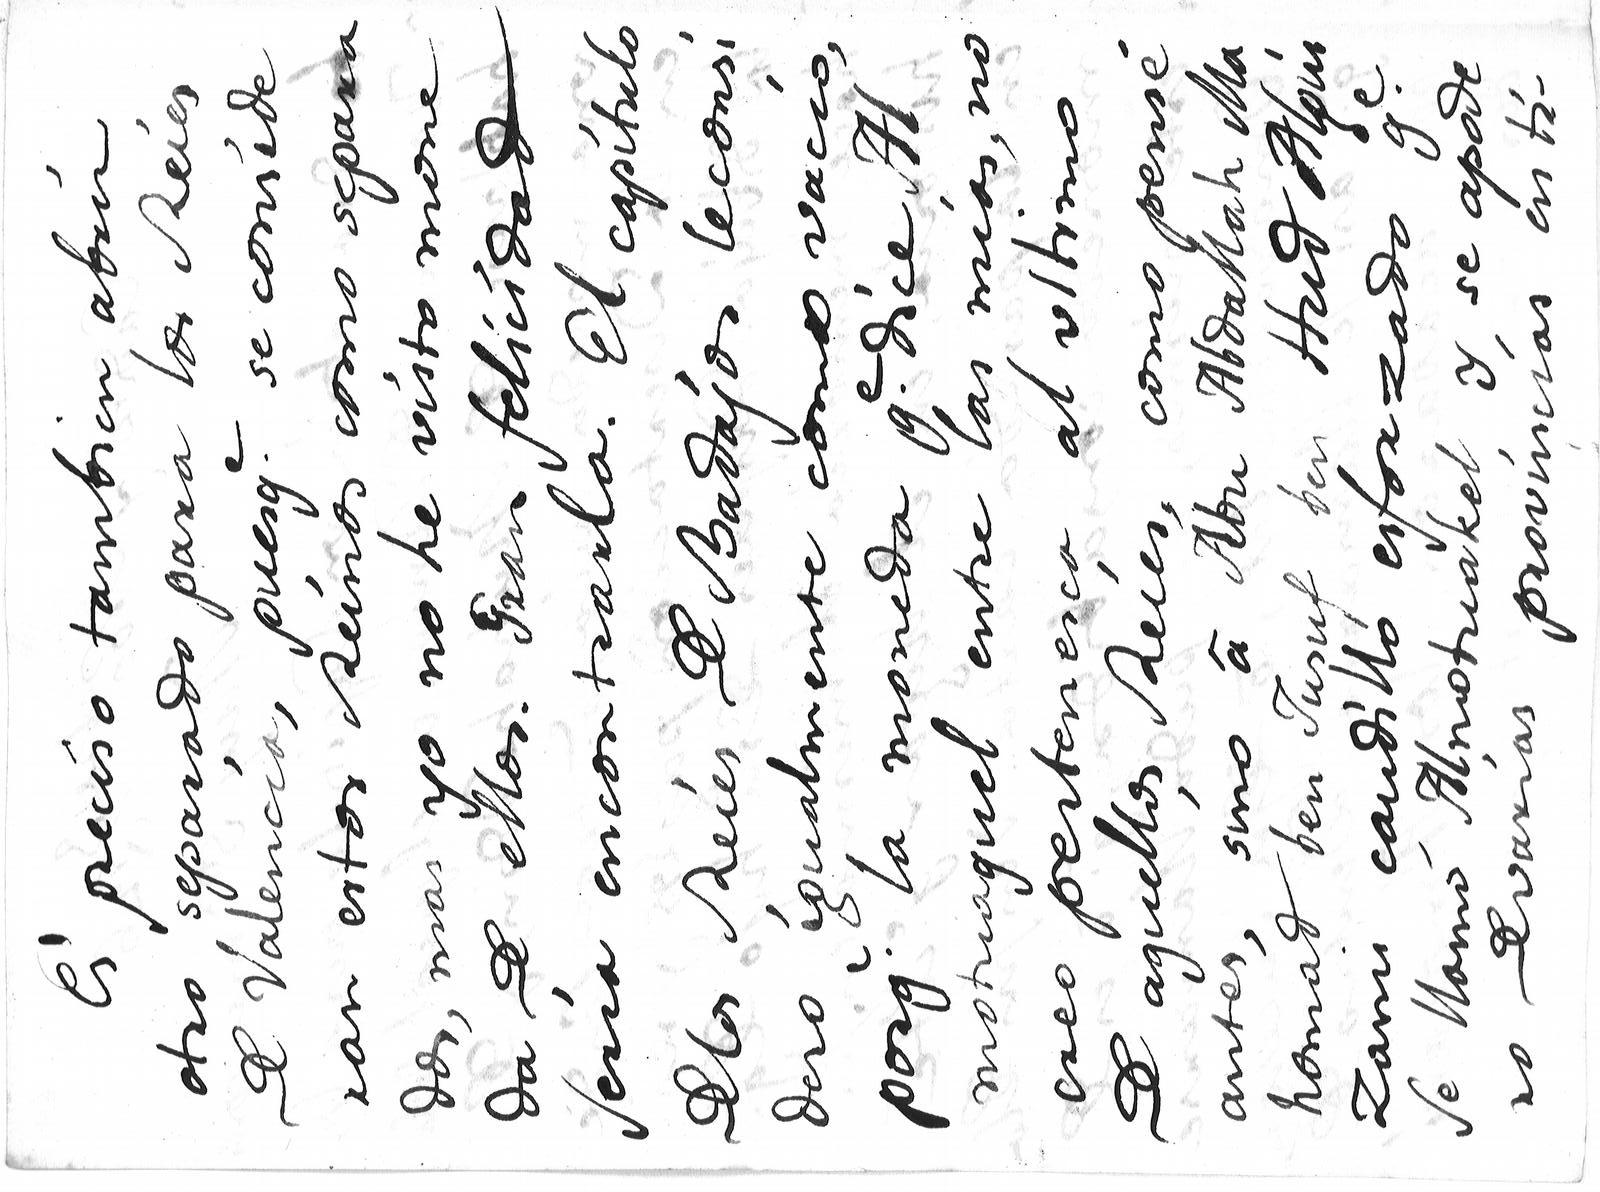 Es preciso tambien abrir
otro separado para los Reies
de Valencia, puesq.e se conside
ran estos Reinos como separa
dos, mas yo no he visto mone
da de ellos. Gran felicidad
seria encontrarla. El capitulo
de los Reies de Badajos le consi
dero igualmente como vacio,
porq.e la moneda q.e dice Al
motuaquel entre las mias, no
creo pertenesca al ultimo
de aquellos Reies, como pensé
antes, sino â Abu Abdallah Ma
homad ben Jusuf ben Hud Algiu
zami caudillo esforzado q.e
se llamó Almotuakel y se apode
ro de varias provincias en ti-